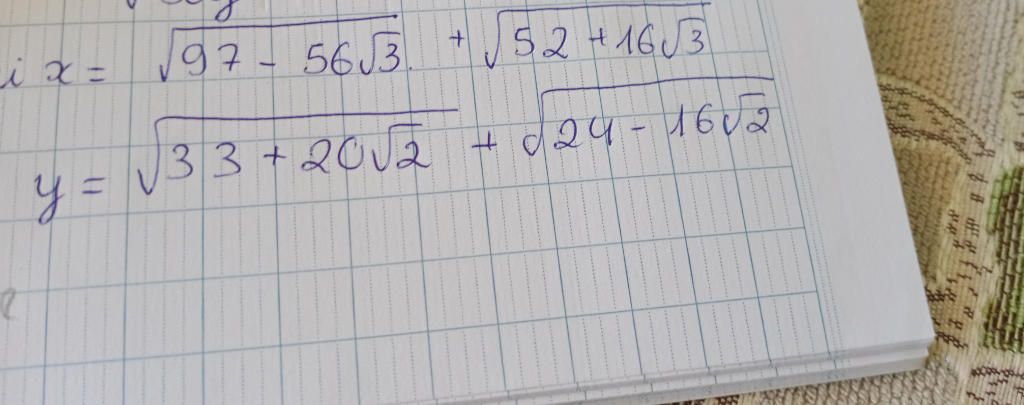 i x = √(97 - 56√3) + √(52 + 16√3)
y = √(33 + 20√2) + √(24 - 16√2)